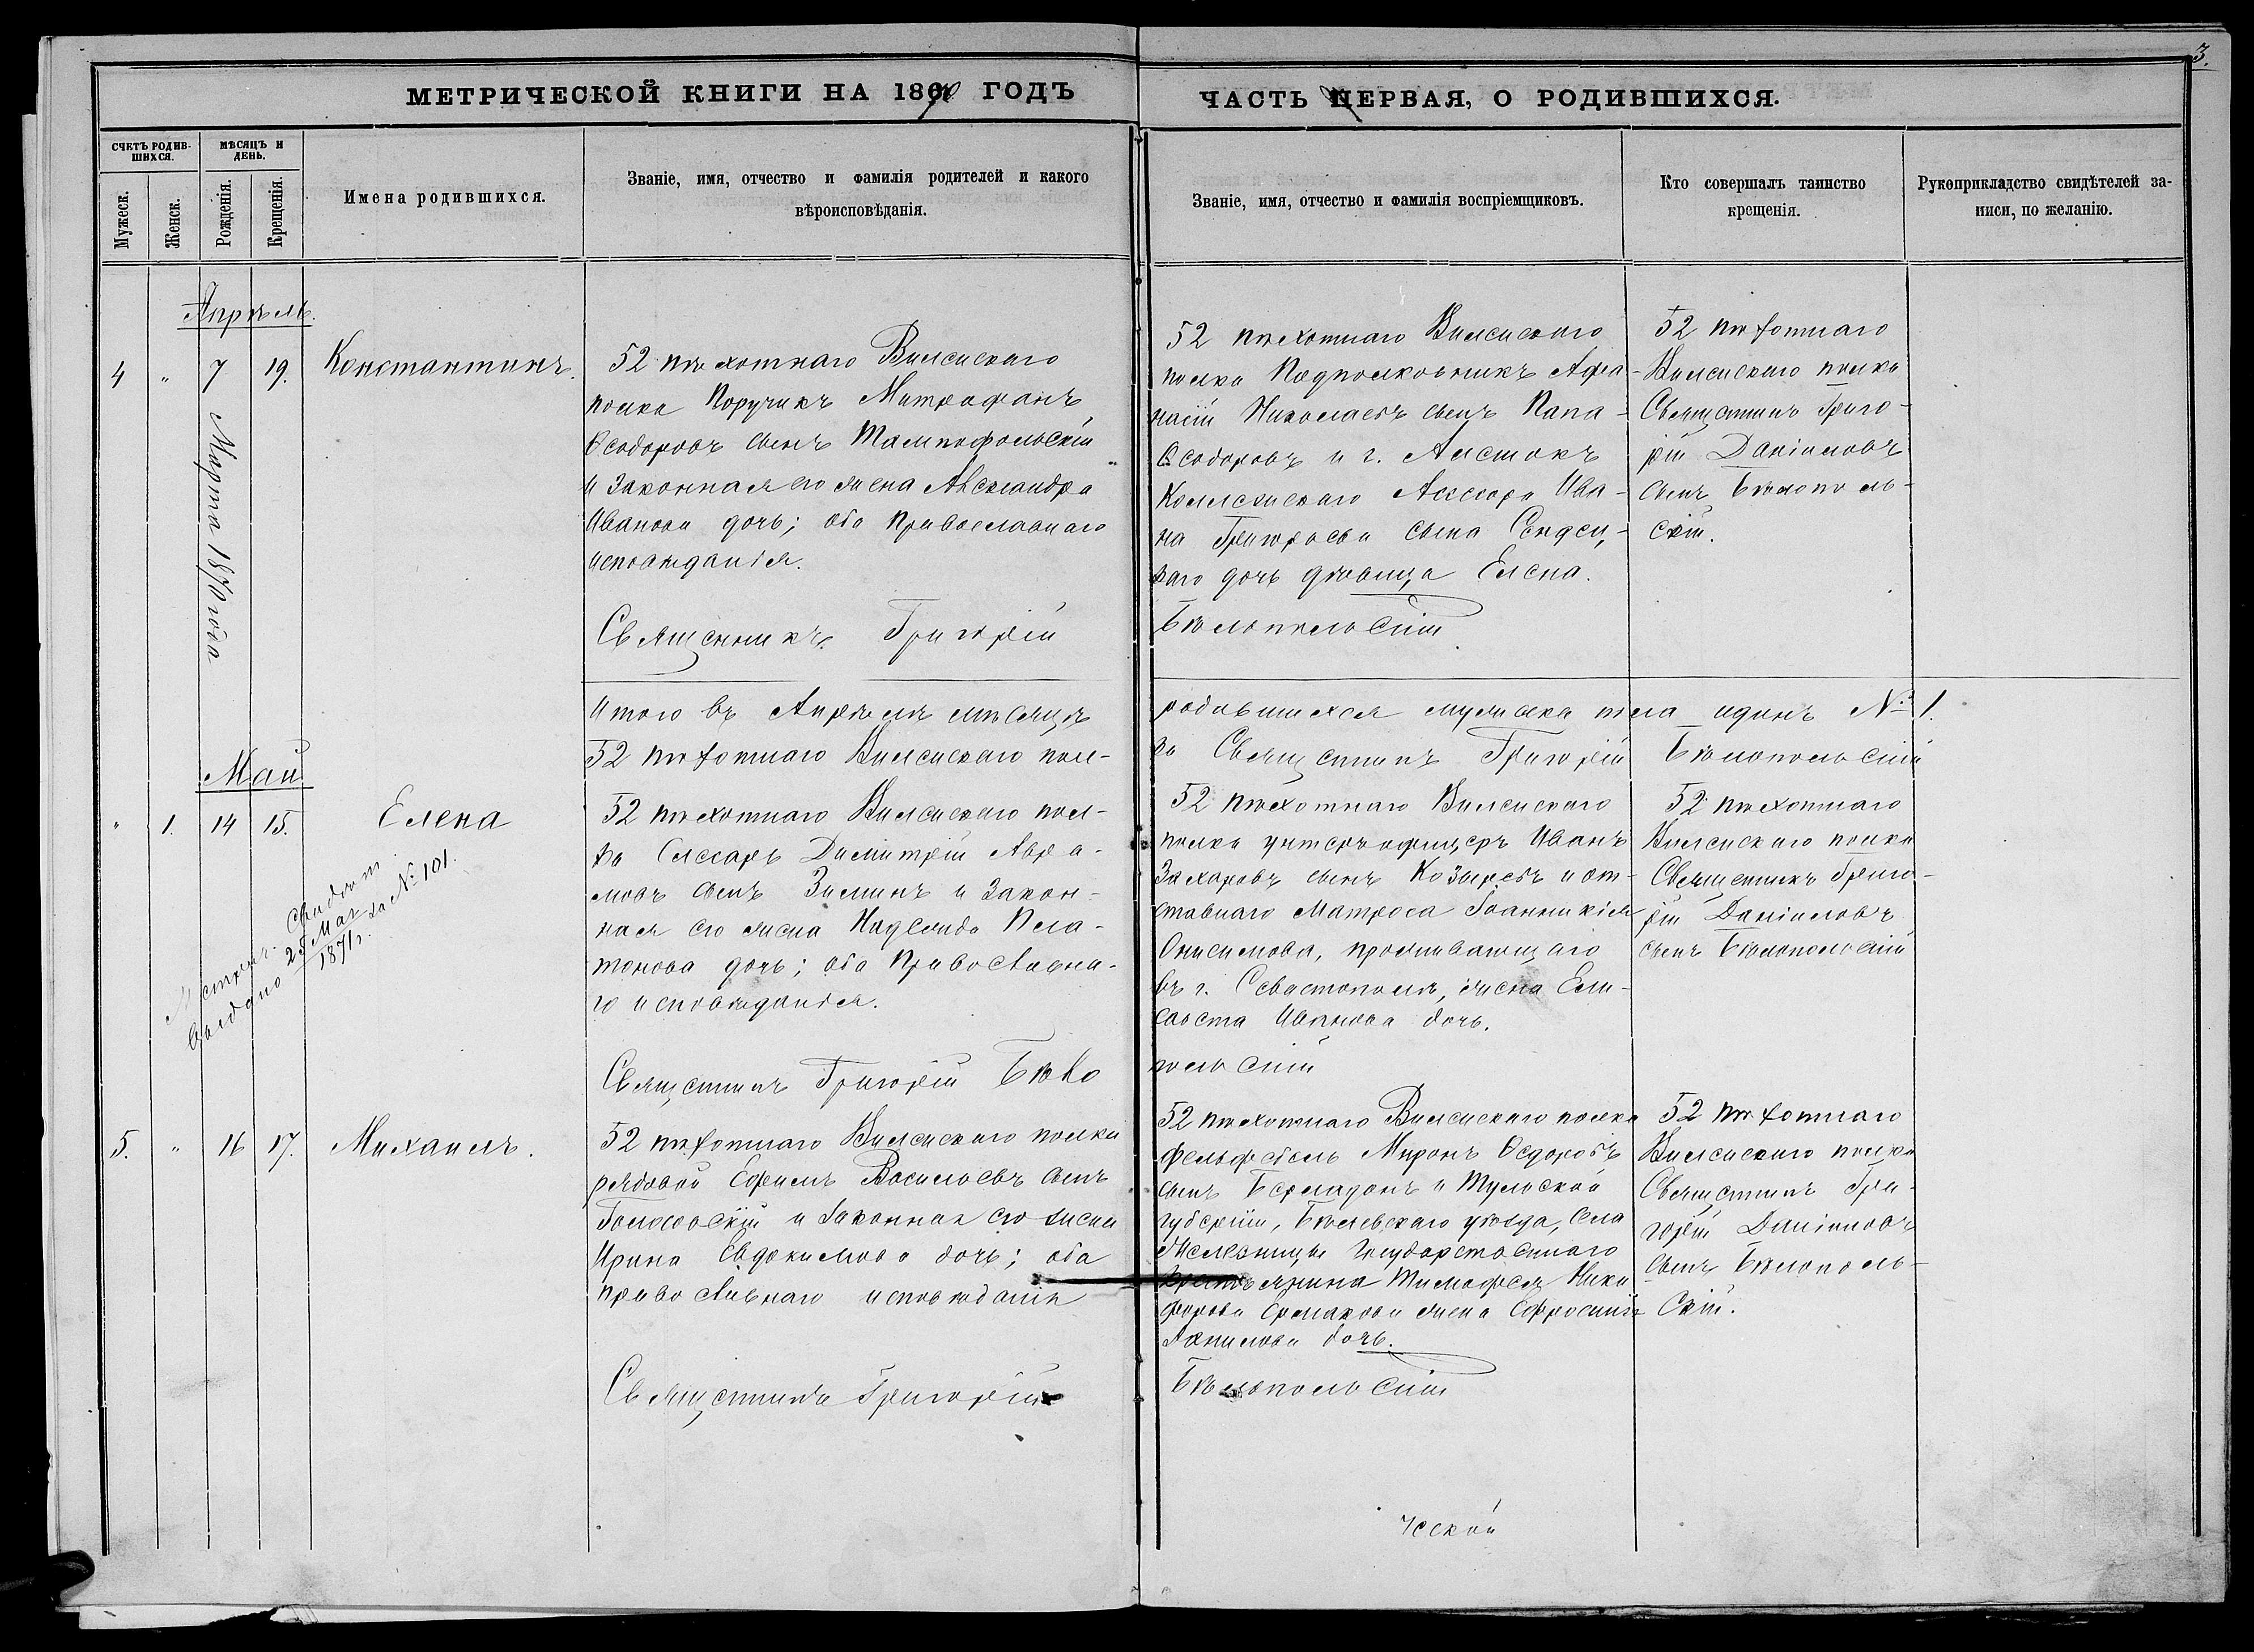 3.
МЕТРИЧЕСКОЙ КНИГИ НА 1870 ГОДЪ
ЧАСТЬ ПЕРВАЯ, О РОДИВШИХСЯ.
СЧЕТЪ РОДИВ-
ШИХСЯ.
МѢСЯЦЪ И
ДЕНЬ.
Мужеск.
Женск.
Рожденія.
Крещенія.
Имена родившихся.
Званіе, имя, отчество и фамилія родителей и какого
вѣроисповѣданія.
Званіе, имя, отчество и фамилія воспріемщиковъ.
Кто совершалъ таинство
крещенія.
Рукоприкладство свидѣтелей за-
писи, по желанію.
Апрѣль.
4 " 7 19. Константинъ.
Марта 1870 года
52 пѣхотнаго Виленскаго
полка Поручикъ Митрофанъ
Ѳеодоровъ сынъ
и законная его жена Александра
Иванова дочь; оба православнаго
исповѣданія.
Священникъ Григорій
52 пѣхотнаго Виленскаго
полка Подполковникъ Афа-
насій Николаевъ сынъ Папа-
Ѳеодоровъ и г. Алешокъ
Коллежскаго Ассесора Ива-
на Григорьева сына
каго дочь дѣвица Елена.
Бѣлопольскій
52 пѣхотнаго
Виленскаго полка
Священникъ Григо-
рій Даніиловъ
сынъ Бѣлополь-
скій.
Итого въ Апрѣлѣ мѣсяцѣ
родившихся мужеска пола одинъ № 1.
52 пѣхотнаго Виленскаго пол-
ка Священникъ Григорій Бѣлопольскій
Май
" 1. 14 15. Елена
Метрич. Свидѣт.
выдано 25 Мая
1871 г. за № 101.
52 пѣхотнаго Виленскаго пол-
ка Слесарь Димитрій Авра-
мовъ сынъ Зиминъ и закон-
ная его жена Надежда Пла-
тонова дочь; оба Православна-
го исповѣданія.
Священникъ Григорій Бѣло
52 пѣхотнаго Виленскаго
полка унтеръ офицеръ Иванъ
Захаровъ сынъ Козыревъ и от-
ставнаго Матроса Іоанникія
Онисимова, проживающаго
въ г. Севастополѣ, жена Ели-
савета Иванова дочь.
польскій
52 пѣхотнаго
Виленскаго полка
Священникъ Григо-
рій Даніиловъ
сынъ Бѣлопольскій
5. " 16 17. Михаилъ.
52 пѣхотнаго Виленскаго полка
рядовой Ефимъ Васильевъ сынъ
и законная его жена
Ирина Евдокимова дочь; оба
православнаго исповѣданія
Священникъ Григорій
52 пѣхотнаго Виленскаго полка
Фельдфебель Миронъ Ѳедоровъ
сынъ и Тульской
губерніи, Бѣлевскаго уѣзда, села
Железницы Государственнаго
крестьянина Тимофея Ники
форова Ермакова жена Ефросинія
Акимова дочь.
Бѣлопольскій
52 пѣхотнаго
Виленскаго полка
Священникъ Гри-
горій Даніиловъ
сынъ Бѣлополь-
скій.
ческой